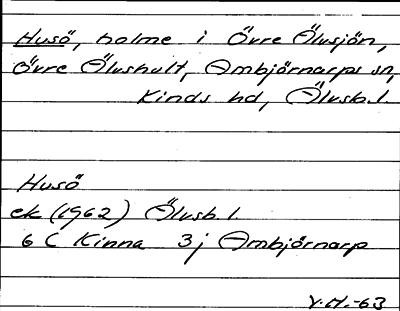 Husö, holme i Övre Älvsjön,
Övre Älvshult, Ambjörnarps sn,
Kinds hd, Älvsb.l.
Husö
ek (1962) Älvsb.l.
6 C Kinna 3j Ambjörnarp
V.H.-63